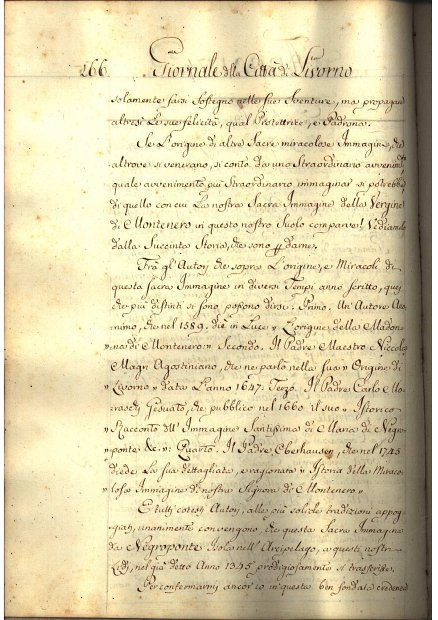 266. Giornale della Città di Livorno
solamente farsi Sostegno nelle sue Sventure, ma propagar
altresì le sue felicità, qual Protettrice, e Padrona.
Se l'origine di altre Sacre miracolose Immagini, che
altrove si venerano, si contò da uno Straordinario avvenim.to
quale avvenimento più Straordinario immaginar si potrebbe
di quello con cui la nostra Sacra Immagine della Vergine
di Montenero in questo nostro Suolo comparve! Vediamolo
dalla Succinta Storia, che sono p darne.
Fra gl'Autori che sopra l'origine, e Miracoli di
questa sacra Immagine in diversi Tempi anno scritto, quei
che più distinti si sono possono dirsi: Primo. Un'Autore Ano-
nimo, che nel 1589. diè in Luce „ L'origine della Madon-
„ na di Montenero „ Secondo. Il Padre Maestro Niccolò
Magri Agostiniano, che ne parlò nella sua „ Origine di
„ Livorno „ data l'anno 1647. Terzo. Il Padre Carlo
Gesuato, che pubblicò nel 1660 il suo „ Istorico
„ Racconto dell'Immagine Santissima di Maria di Negro-
„ ponte &c. „: Quarto. Il Padre Oberhausen, che nel 1745
diede la sua dettagliata, e ragionata „ Istoria della Miraco-
„ losa Immagine di nostra Signora di Montenero „
E tutti cotesti Autori, alle più solide tradizioni appog-
giati, unanimente convengono, che questa Sacra Immagine
da Negroponte Isola nell'Arcipelago, a questi nostri
Lidi, nel già detto Anno 1345 prodigiosamente si trasferisse.
Per confermarmi ancor'io in questa ben fondata credenza